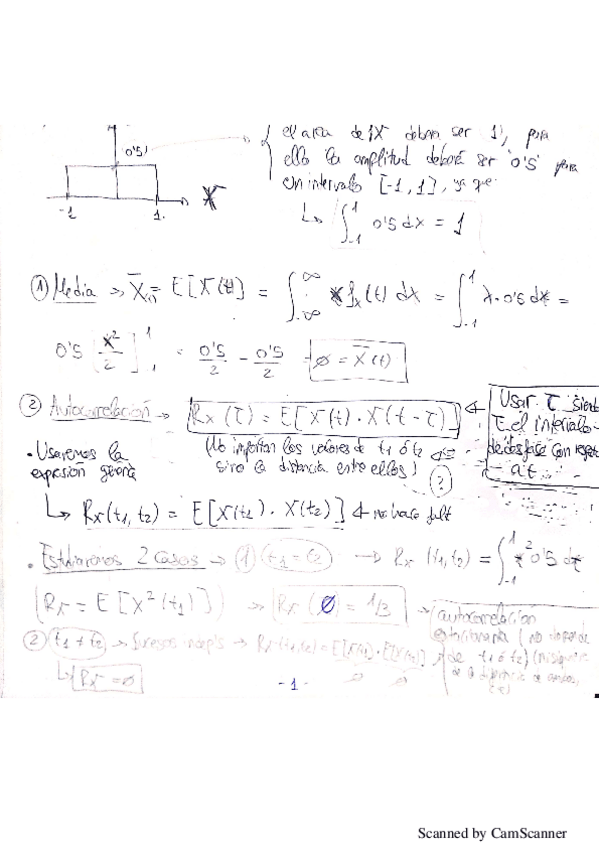 0'5
-1 1. X
el area de X deberá ser 1, para
ello la amplitud deberá ser 0'5 para
un intervalo [-1, 1], ya que
↳ ∫_{-1}^{1} 0'5 dx = 1
① Media → X̄(t) = E[X(t)] = ∫_{-∞}^{∞} x f_x(t) dx = ∫_{-1}^{1} x · 0'5 dx =
0'5 [x²/2]_{-1}^{1} = 0'5/2 - 0'5/2 = ∅ = X̄(t)
② Autocorrelación → Rx(τ) = E[X(t) · X(t-τ)]
Usar τ
el intervalo
de desfase con
a t
• Usaremos la
expresión
(No importan los valores de t1 ó t2
sino la distancia entre ellos)
?
↳ Rx(t1, t2) = E[X(t1) · X(t2)] no hace falt
• Estudiaremos 2 casos → ① t1 = t2 → Rx(t1, t2) = ∫_{-1}^{1} x² 0'5 dx
Rx = E[X²(t1)] → Rx(∅) = 1/3
autocorrelación
estacionaria (no
de t1 ó t2)
② t1 ≠ t2 → Sucesos indep → Rx(t1, t2) = E[X(t1)] · E[X(t2)]
↳ Rx = ∅
- 1 -
Scanned by CamScanner